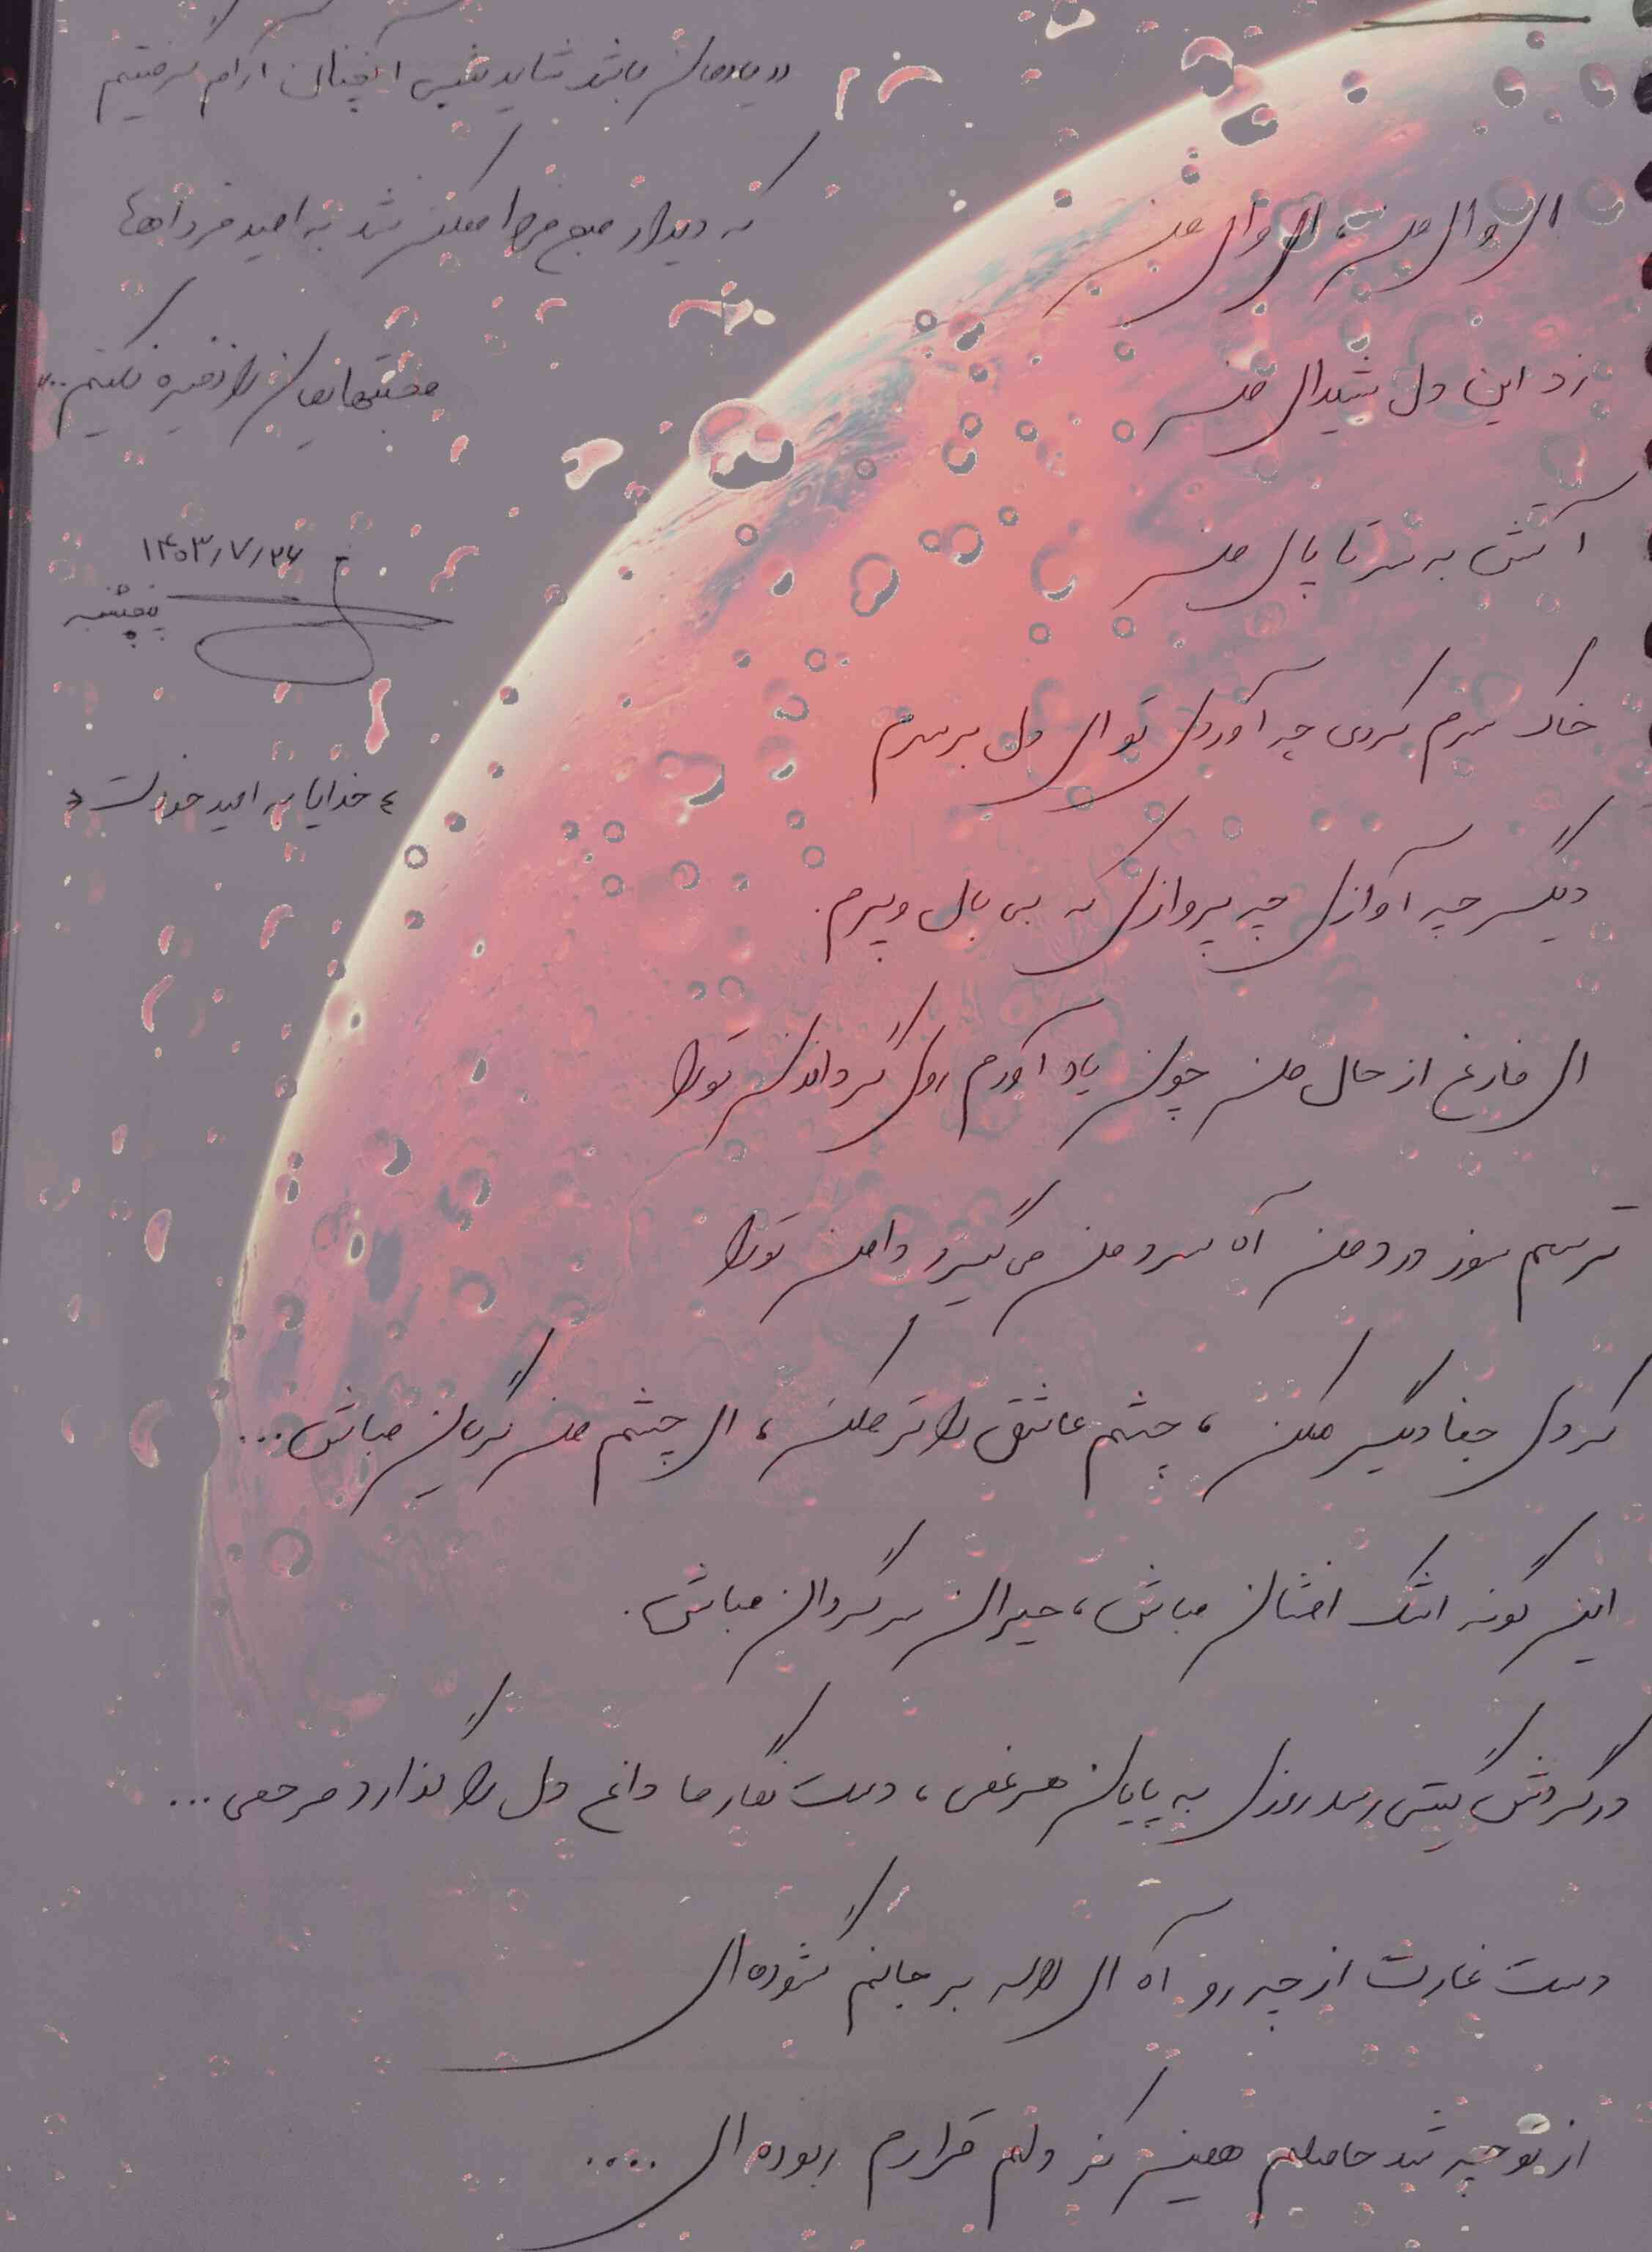 ای وای من، ای وای من
زد این دل شیدای من
آتش به سر تا پای من
خاک سرم کردی چه آوردی تو ای دل بر سرم
دیگر چه آوازی چه پروازی که بی بال و پرم.
ای فارغ از حال من چون یاد آورم روی گرداندن تو را
ترسم سوز درد من آه سرد من می گیرد دامن تو را
کردی جفا دیگر مکن، چشم عاشق را تر مکن، ای چشم من گریان مباش...
این گونه اشک افشان مباش، حیران سرگردان مباش.
در گردش گیتی رسد روزی به پایان هر غمی، دست نگار ما داغ دل را گذارد مرحمی...
دست غارت از چه رو آه ای لاله بر جانم گشوده ای
از تو چه شد حاصلم همین کز دلم قرارم ربوده ای ....
در یادمان باشد شاید شبی آنچنان آرام گرفتیم
که دیدار صبح فردا ممکن نشد به امید فرداها
محبتهایمان را ذخیره نکنیم..
۱۴۰۳/۷/۲۶
پنجشنبه
«خدایا به امید خودت»